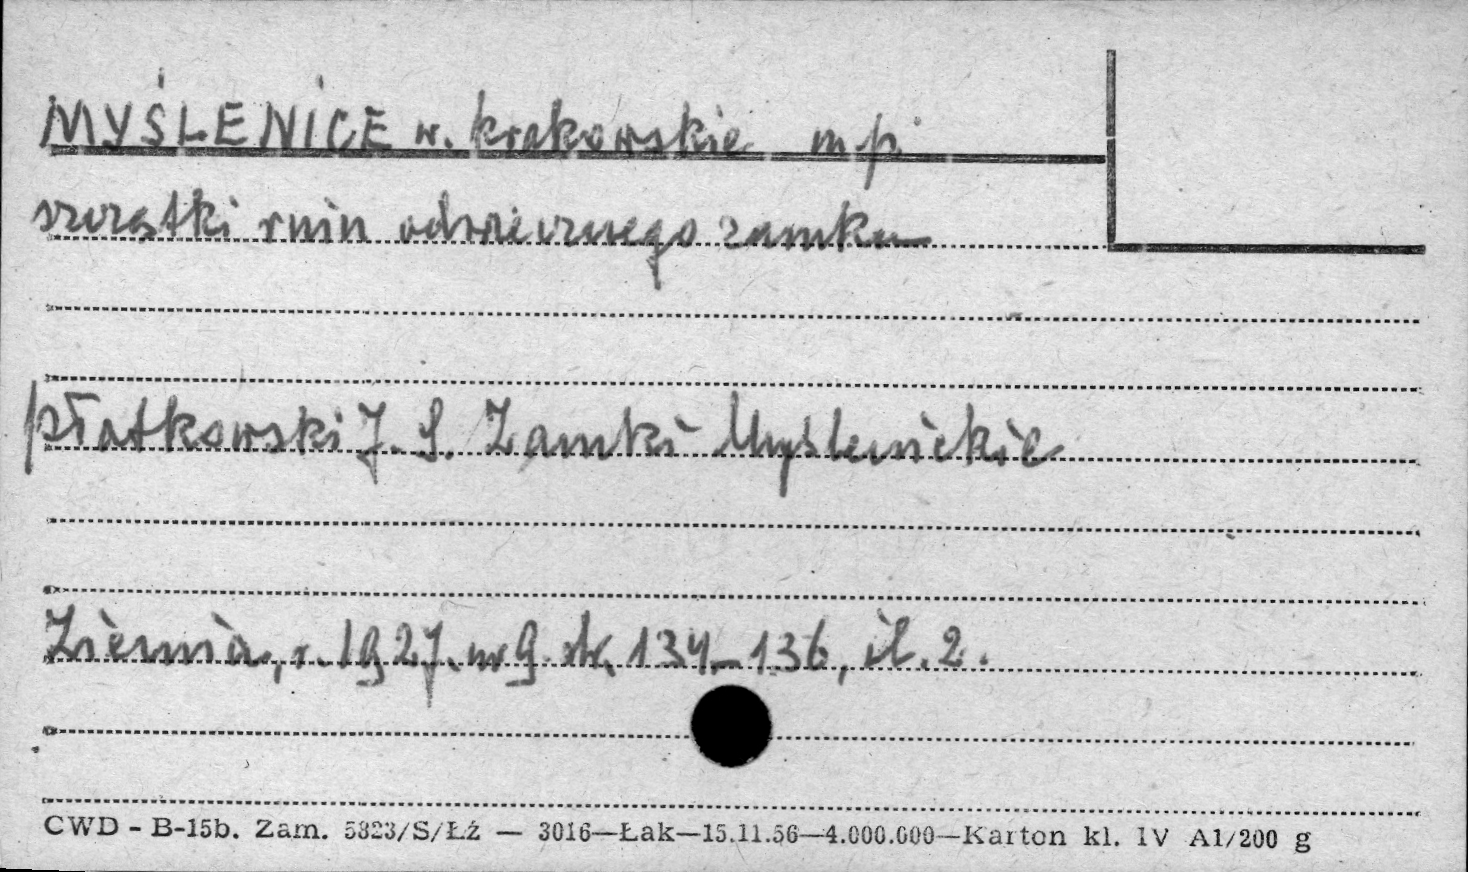 MYŚLENICE w. krakowskie m.p.
szczątki ruin odwiecznego zamku
Płatkowski J. S. Zamki Myślenickie
Ziemia, r. 1927. nr 9 str. 134–136, il. 2.
CWD - B-15b. Zam. 5823/S/Łź — 3016—Łak—15.11.56—4.000.000—Karton kl. IV A1/200 g